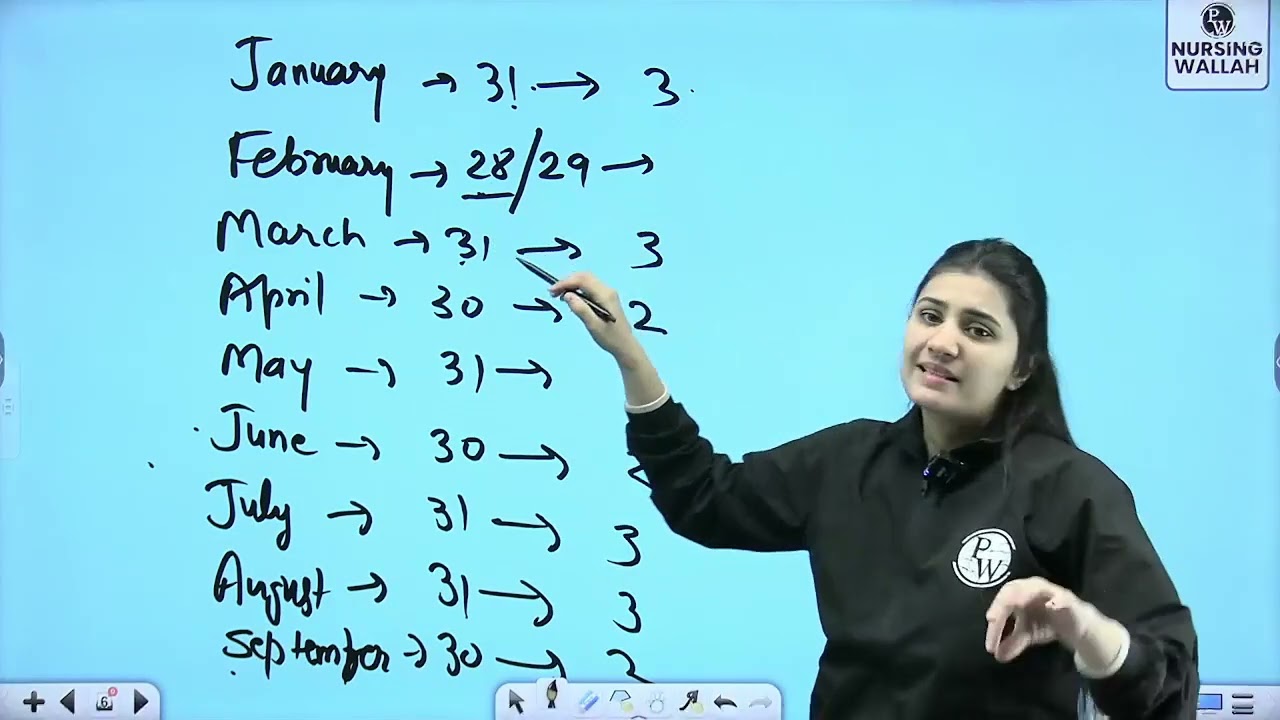 January → 31 → 3
February → 28/29 →
March → 31 → 3
April → 30 → 2
May → 31 →
June → 30 → 2
July → 31 → 3
August → 31 → 3
September → 30 → 2
PW
NURSING
WALLAH
PW
6